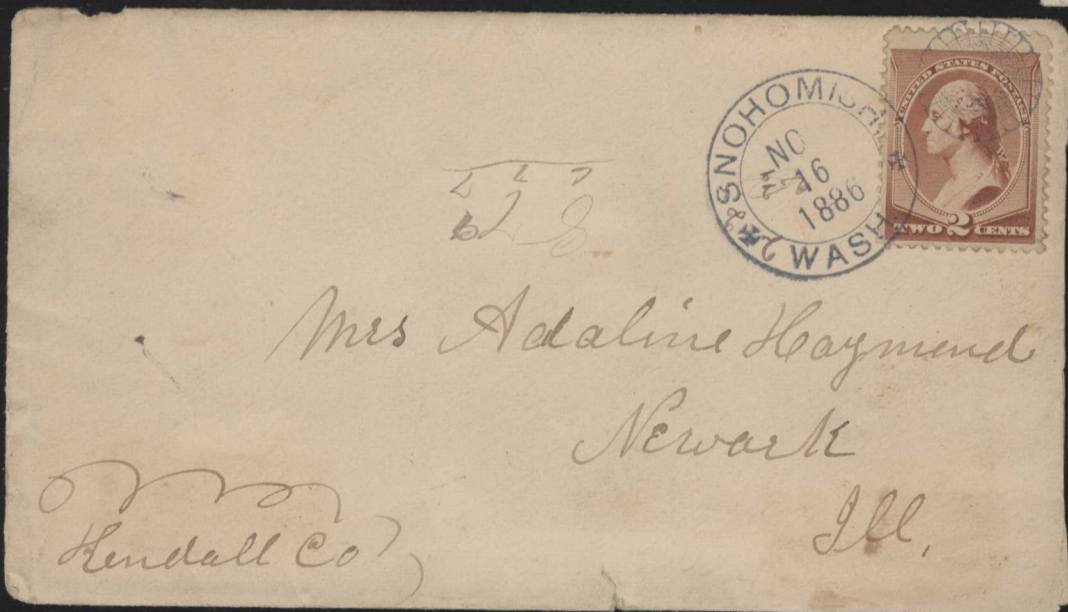 SNOHOMISH,
NO
16
1886
WASH
UNITED STATES POSTAGE
TWO 2 CENTS
Mrs Adaline Haymend
Newark
Ill,
Kendall Co